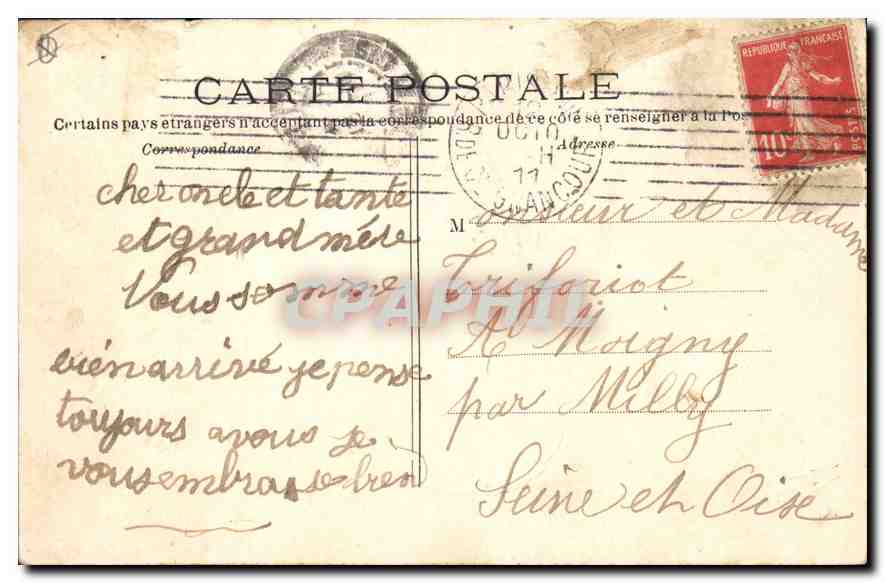 CARTE POSTALE
Certains pays etrangers n'acceptant pas la correspondance de ce côté se renseigner à la Pos
Correspondance
Adresse
REPUBLIQUE FRANÇAISE
10
POSTES
OCT
11
cher oncle et tante
et grand mère
Vous somme
bien arrivé je pense
toujours a vous je
vous embrasse bien
Monsieur et Madame
Triforiot
A Moigny
par Milly
Seine et Oise
CPAPHIL